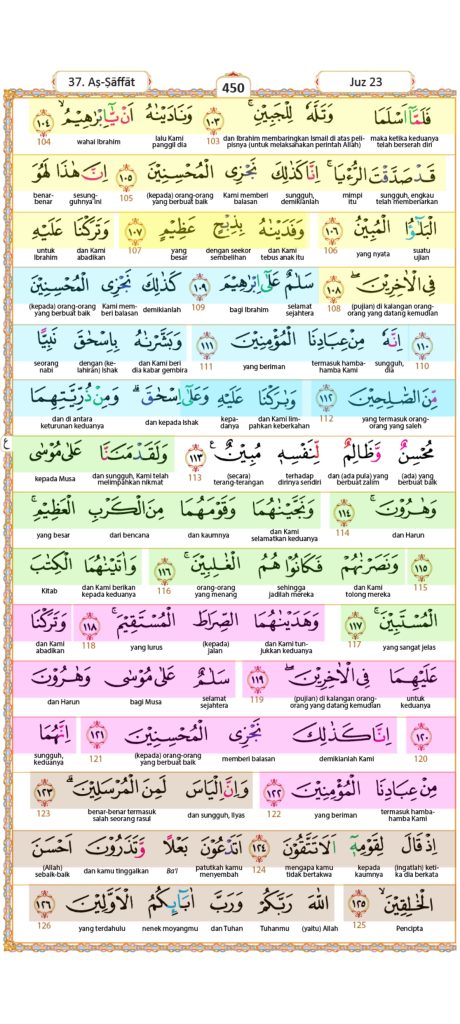 37. Aṣ-Ṣāffāt 450 Juz 23
فَلَمَّآ اَسْلَمَا وَتَلَّهٗ لِلْجَبِيْنِۚ ﴿١٠٣﴾ وَنَادَيْنٰهُ اَنْ يّٰٓاِبْرٰهِيْمُۙ ﴿١٠٤﴾
maka ketika keduanya telah berserah diri dan Ibrahim membaringkan Ismail di atas pelipisnya (untuk melaksanakan perintah Allah) 103 lalu Kami panggil dia wahai Ibrahim 104
قَدْ صَدَّقْتَ الرُّءْيَا ۚ اِنَّا كَذٰلِكَ نَجْزِى الْمُحْسِنِيْنَ ﴿١٠٥﴾ اِنَّ هٰذَا لَهُوَ
sungguh, engkau telah membenarkan mimpi itu sungguh, demikianlah Kami memberi balasan (kepada) orang-orang yang berbuat baik 105 sesungguhnya ini benar-benar
الْبَلٰۤؤُا الْمُبِيْنُ ﴿١٠٦﴾ وَفَدَيْنٰهُ بِذِبْحٍ عَظِيْمٍ ﴿١٠٧﴾ وَتَرَكْنَا عَلَيْهِ
suatu ujian yang nyata 106 dan Kami tebus anak itu dengan seekor sembelihan yang besar 107 dan Kami abadikan untuk Ibrahim
فِى الْاٰخِرِيْنَ ۖ ﴿١٠٨﴾ سَلٰمٌ عَلٰٓى اِبْرٰهِيْمَ ﴿١٠٩﴾ كَذٰلِكَ نَجْزِى الْمُحْسِنِيْنَ
(pujian) di kalangan orang-orang yang datang kemudian 108 selamat sejahtera bagi Ibrahim 109 demikianlah Kami memberi balasan (kepada) orang-orang yang berbuat baik
﴿١١٠﴾ اِنَّهٗ مِنْ عِبَادِنَا الْمُؤْمِنِيْنَ ﴿١١١﴾ وَبَشَّرْنٰهُ بِاِسْحٰقَ نَبِيًّا
110 sungguh, dia termasuk hamba-hamba Kami yang beriman 111 dan Kami beri dia kabar gembira dengan (kelahiran) Ishak seorang nabi
مِّنَ الصّٰلِحِيْنَ ﴿١١٢﴾ وَبٰرَكْنَا عَلَيْهِ وَعَلٰٓى اِسْحٰقَۗ وَمِنْ ذُرِّيَّتِهِمَا
yang termasuk orang-orang yang saleh 112 dan Kami limpahkan keberkahan kepadanya dan kepada Ishak dan di antara keturunan keduanya
مُحْسِنٌ وَّظَالِمٌ لِّنَفْسِهٖ مُبِيْنٌ ࣖ ﴿١١٣﴾ وَلَقَدْ مَنَنَّا عَلٰى مُوْسٰى ع
(ada) yang berbuat baik dan (ada pula) yang berbuat zalim terhadap dirinya sendiri (secara) terang-terangan 113 dan sungguh, Kami telah melimpahkan nikmat kepada Musa
وَهٰرُوْنَ ۚ ﴿١١٤﴾ وَنَجَّيْنٰهُمَا وَقَوْمَهُمَا مِنَ الْكَرْبِ الْعَظِيْمِۚ
dan Harun 114 dan Kami selamatkan keduanya dan kaumnya dari bencana yang besar
﴿١١٥﴾ وَنَصَرْنٰهُمْ فَكَانُوْا هُمُ الْغٰلِبِيْنَۚ ﴿١١٦﴾ وَاٰتَيْنٰهُمَا الْكِتٰبَ
115 dan Kami tolong mereka sehingga jadilah mereka orang-orang yang menang 116 dan Kami berikan kepada keduanya Kitab
الْمُسْتَبِيْنَ ۚ ﴿١١٧﴾ وَهَدَيْنٰهُمَا الصِّرَاطَ الْمُسْتَقِيْمَۚ ﴿١١٨﴾ وَتَرَكْنَا
yang sangat jelas 117 dan Kami tunjukkan keduanya (kepada) jalan yang lurus 118 dan Kami abadikan
عَلَيْهِمَا فِى الْاٰخِرِيْنَ ۖ ﴿١١٩﴾ سَلٰمٌ عَلٰى مُوْسٰى وَهٰرُوْنَ
untuk keduanya (pujian) di kalangan orang-orang yang datang kemudian 119 selamat sejahtera bagi Musa dan Harun
﴿١٢٠﴾ اِنَّا كَذٰلِكَ نَجْزِى الْمُحْسِنِيْنَ ﴿١٢١﴾ اِنَّهُمَا
120 demikianlah Kami memberi balasan (kepada) orang-orang yang berbuat baik 121 sungguh, keduanya
مِنْ عِبَادِنَا الْمُؤْمِنِيْنَ ﴿١٢٢﴾ وَاِنَّ اِلْيَاسَ لَمِنَ الْمُرْسَلِيْنَۗ ﴿١٢٣﴾
termasuk hamba-hamba Kami yang beriman 122 dan sungguh, Ilyas benar-benar termasuk salah seorang rasul 123
اِذْ قَالَ لِقَوْمِهٖٓ اَلَا تَتَّقُوْنَ ﴿١٢٤﴾ اَتَدْعُوْنَ بَعْلًا وَّتَذَرُوْنَ اَحْسَنَ
(ingatlah) ketika dia berkata kepada kaumnya mengapa kamu tidak bertakwa 124 patutkah kamu menyembah Ba'l dan kamu tinggalkan (Allah) sebaik-baik
الْخٰلِقِيْنَۙ ﴿١٢٥﴾ اللّٰهَ رَبَّكُمْ وَرَبَّ اٰبَاۤىِٕكُمُ الْاَوَّلِيْنَ ﴿١٢٦﴾
Pencipta 125 (yaitu) Allah Tuhanmu dan Tuhan nenek moyangmu yang terdahulu 126